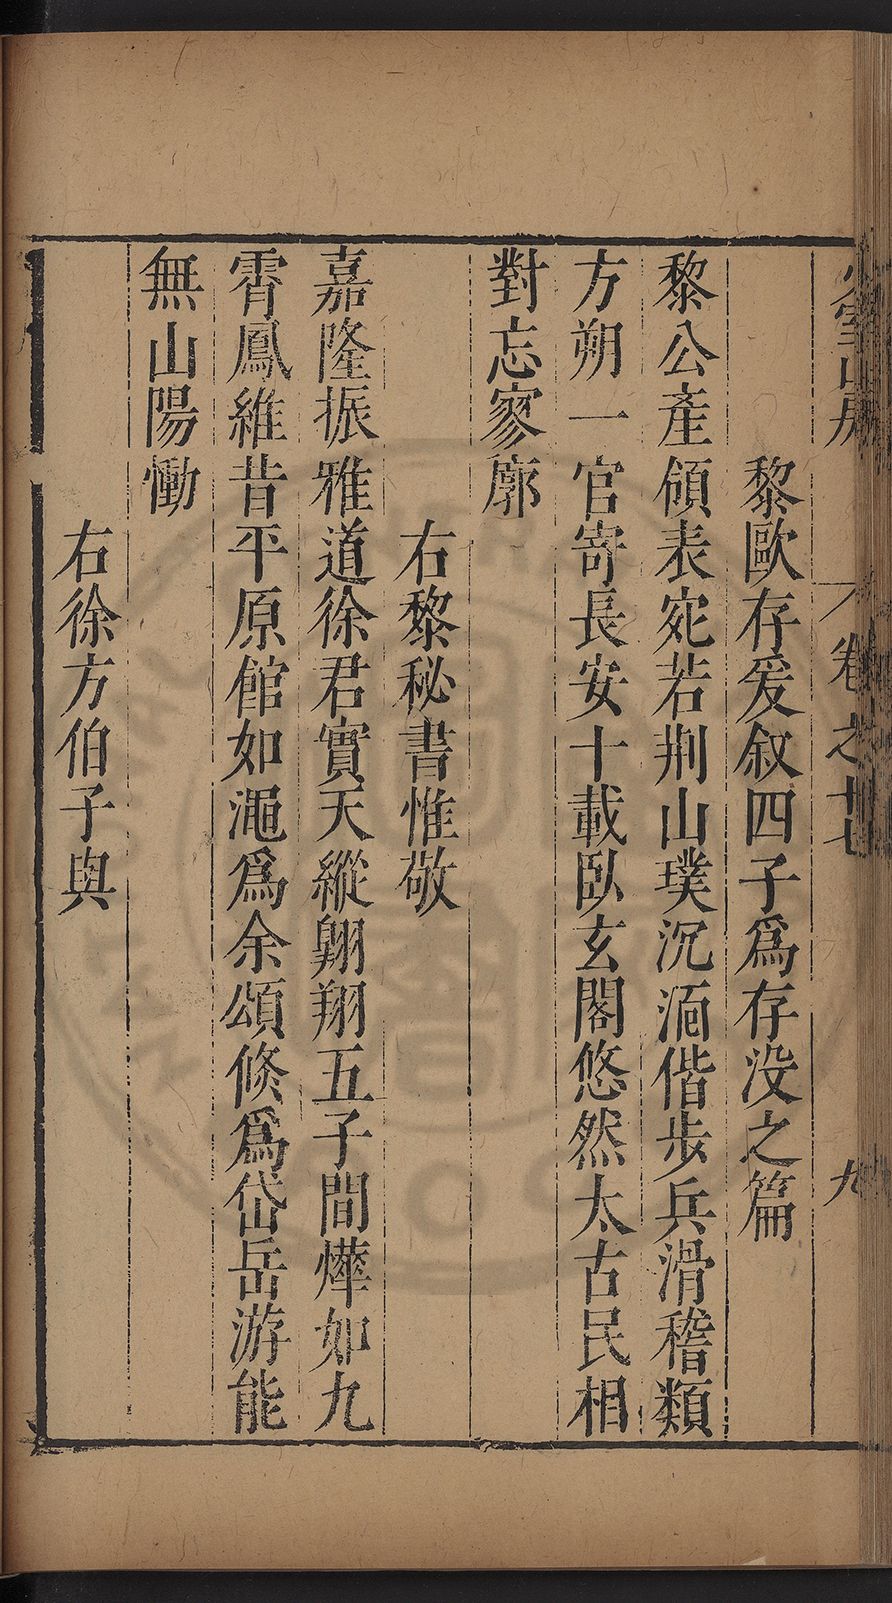 少室山房　卷之十七　九
黎歐存爰叙四子爲存没之篇
黎公產領表宛若荆山璞沉湎偕步兵滑稽類
方朔一官寄長安十載臥玄閣悠然太古民相
對忘寥廓
右黎秘書惟敬
嘉隆振雅道徐君實天縱翺翔五子間燁如九
霄鳳維昔平原館如澠爲余頌倐爲岱岳游能
無山陽慟
右徐方伯子與